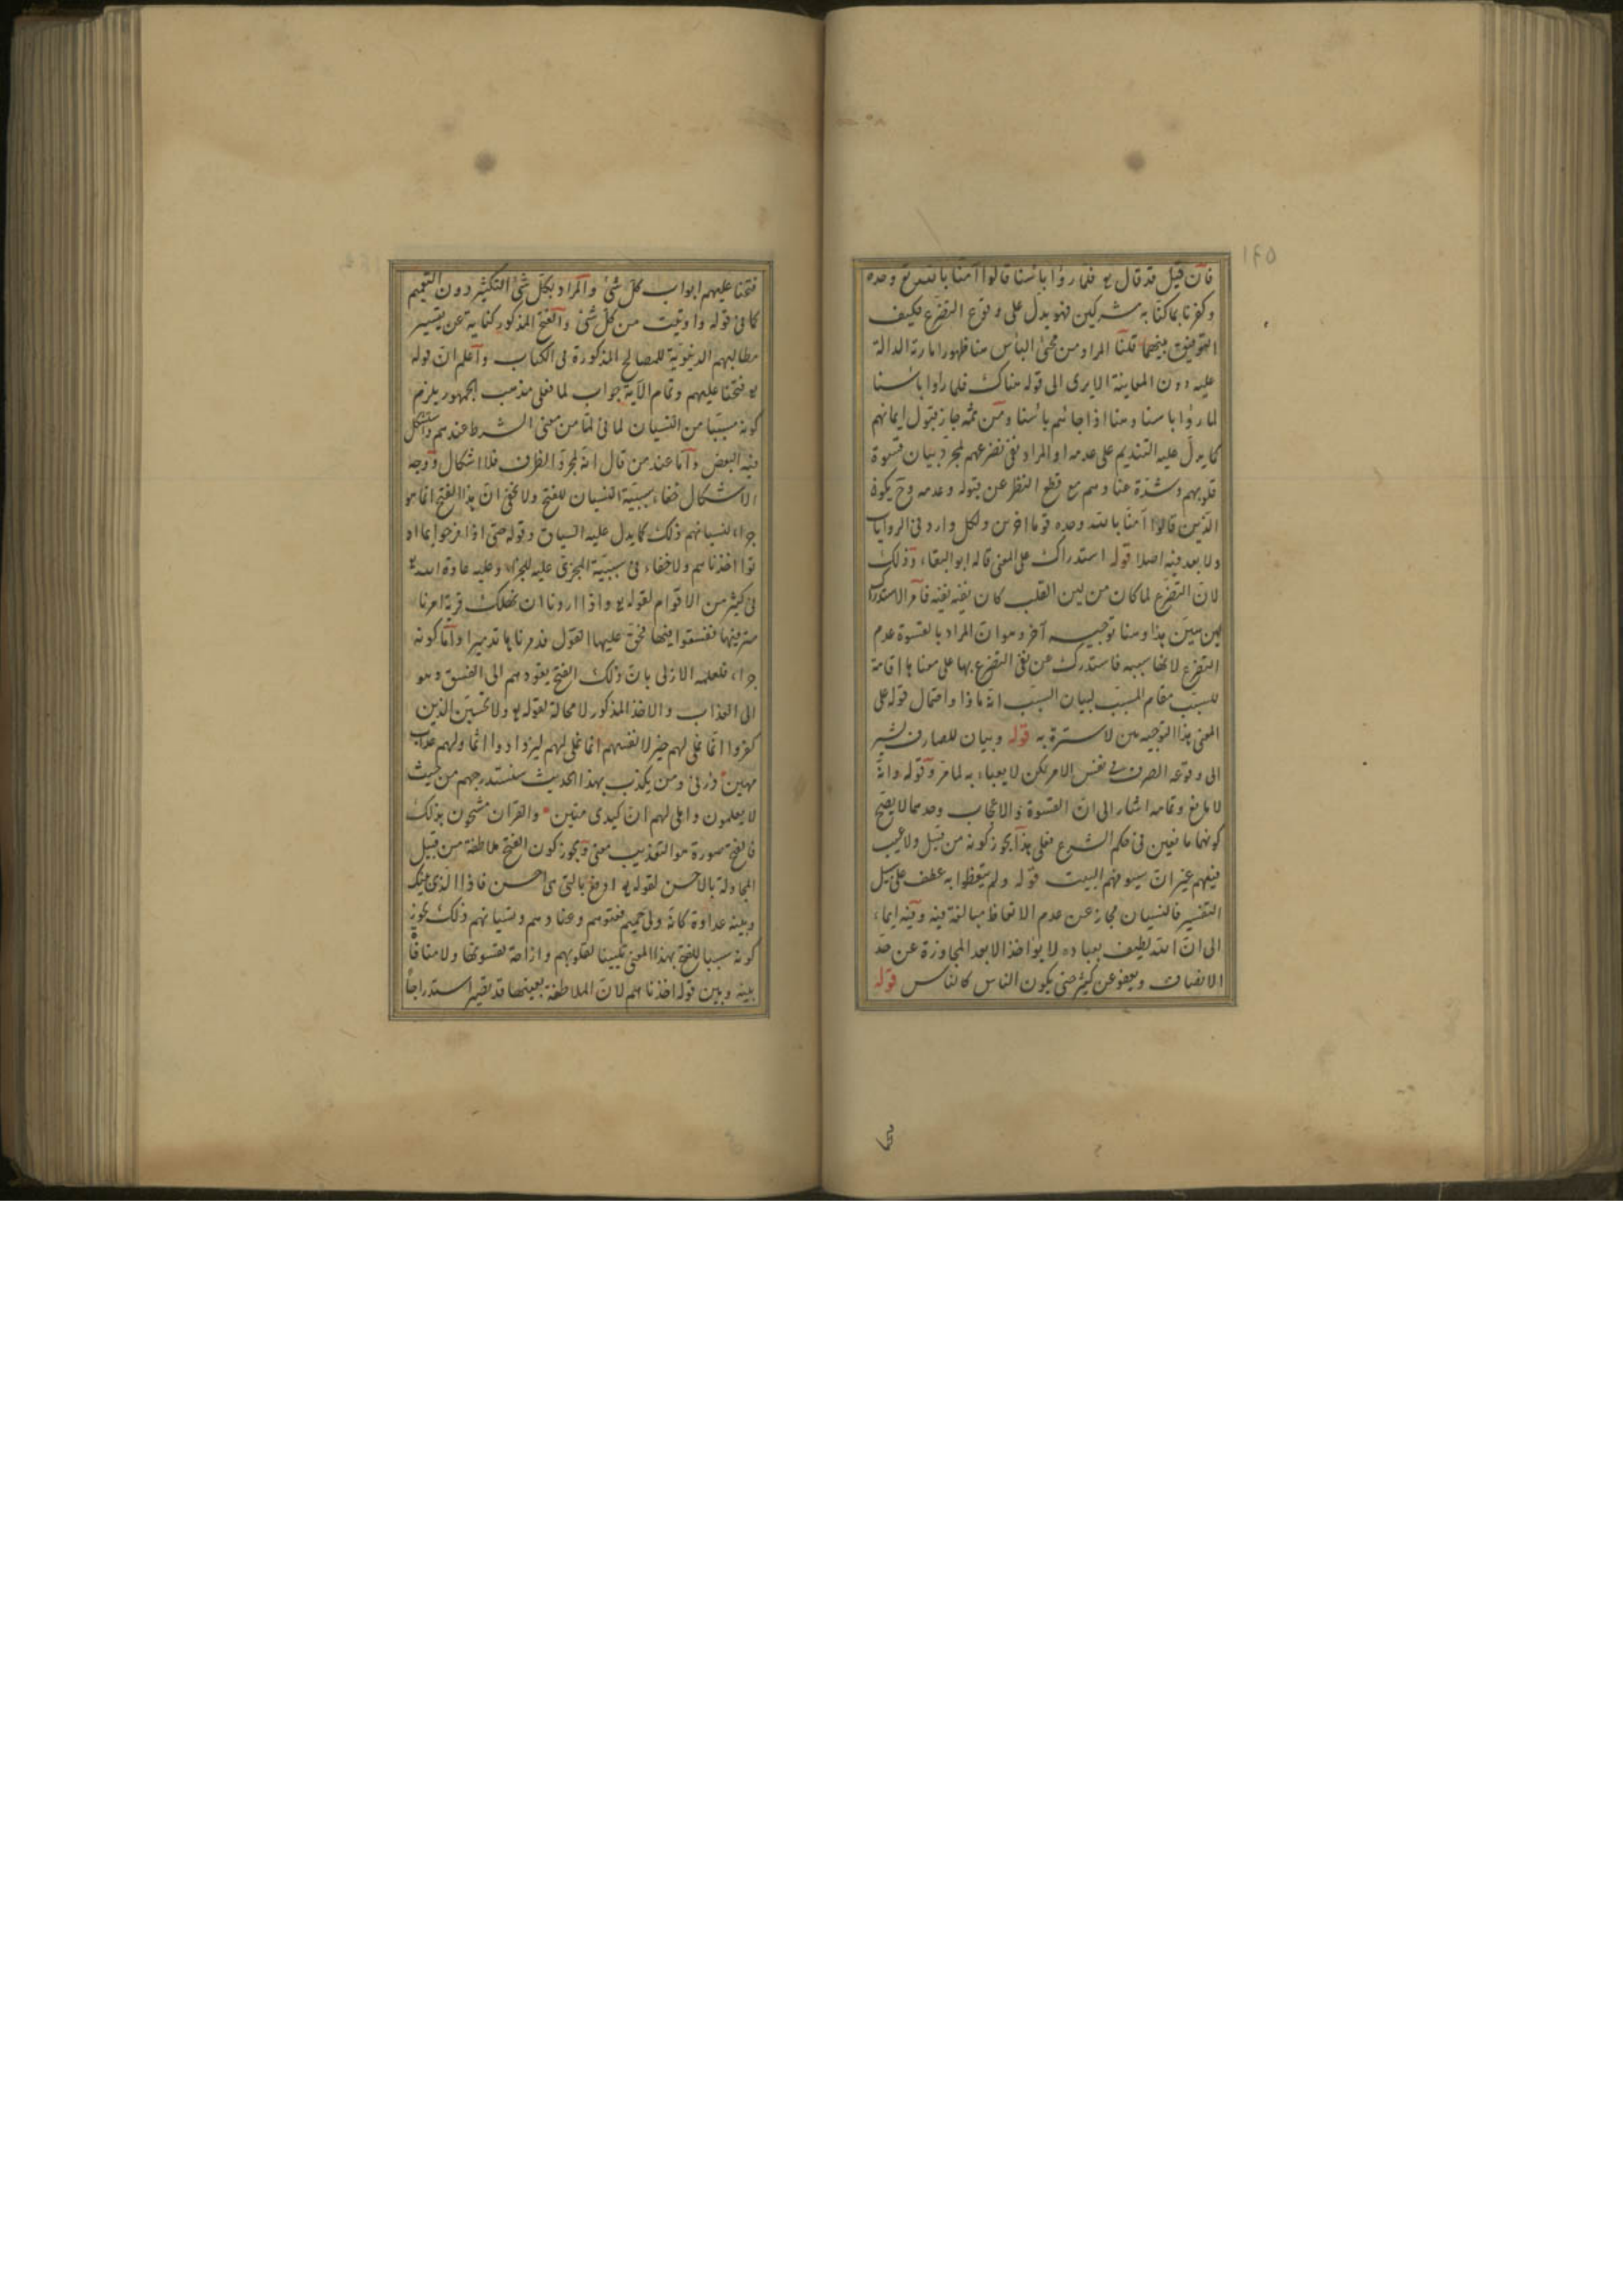 ١٤٥
فان قيل قد قال تع فلما رؤا بأسنا قالوا آمنا بالله تع وحده
وكفرنا بما كنا به مشركين فهو يدل على وقوع التضرع فكيف
التوفيق بينهما قلنا المراد من مجئ البأس هنا ظهور امارته الدالة
عليه دون المعاينة الا يرى الى قوله هناك فلما رأوا بأسنا
لما رؤا باسنا وهنا اذ اجائهم بأسنا ومن ثمه جاز قبول ايمانهم
كما يدل عليه التنديم على عدمه او المراد نفى تضرعهم لمجرد بيان قسوة
قلوبهم وشدة عنادهم مع قطع النظر عن قبوله وعدمه وح يكون
الذين قالوا آمنا بالله وحده قوما اخرين ولكل وارد فى الروايات
ولا بعد فيه اصلا قوله استدراك على المعنى قاله ابو البقاء وذلك
لان التضرع لما كان من لين القلب كان نفيه نفيه فامر الاستدراك
بين بين هذا وهنا توجيه آخر وهو ان المراد بالقسوة عدم
التضرع لانها سببه فاستدرك عن نفى التضرع بها على معناها اقامة
للسبب مقام المسبب لبيان السبب انه ماذا واحتمال قوله على
المعنى هذا التوجيه من لا سترة به قوله وبيان للصارف يشير
الى وقوعه الصرف فى نفس الامر لكن لا يعباء به لما مر وقوله وانه
لا مانع وتمامه اشار الى ان القسوة والاعجاب وحدهما لا يصح
كونهما مانعين فى حكم الشرع فعلى هذا يجوز كونه من قبيل ولا عيب
فيهم غير ان سيوفهم البيت قوله ولم يتعظوا به عطف على سبيل
التفسير فالنسيان مجاز عن عدم الاتعاظ مبالغة فيه وفيه ايماء
الى ان الله لطيف بعباده لا يؤاخذ الا بعد المجاوزة عن حد
الانصاف ويعفو عن كثير حتى يكون الناس كالناس قوله
فتحنا عليهم ابواب كل شئ والمراد بكل شئ التكثير دون التعميم
كما فى قوله واوتيت من كل شئ والفتح المذكور كناية عن تيسير
مطالبهم الدنيوية للمصالح المذكورة فى الكتاب واعلم ان قوله
تع فتحنا عليهم وتمام الآية جواب لما فعلى مذهب الجمهور يلزم
كونه مسببا من النسيان لما فى لما من معنى الشرط عندهم واستشكل
فيه البعض واما عند من قال انه لمجرد الظرف فلا اشكال ووجه
الاشكال خفاء سببية النسيان للفتح ولا يخفى ان هذا الفتح انما هو
جزاء لنسيانهم ذلك كما يدل عليه السياق وقوله حتى اذا فرحوا بما او
توا اخذناهم ولا خفاء فى سببية المجزى عليه للجزاء وعليه عادة الله تع
فى كثير من الاقوام لقوله تع واذا اردنا ان نهلك قرية امرنا
مترفيها ففسقوا فيها فحق عليها القول فدمرناها تدميرا واما كونه
جزاء فلعلمه الازلى بان ذلك الفتح يقودهم الى الفسق وهو
الى العذاب والاخذ المذكور لا محالة لقوله تع ولا تحسبن الذين
كفروا انما نملى لهم خير لانفسهم انما نملى لهم ليزدادوا اثما ولهم عذاب
مهين ذرنى ومن يكذب بهذا الحديث سنستدرجهم من حيث
لا يعلمون واملى لهم ان كيدى متين والقرآن مشحون بذلك
فالفتح صورة هو التعذيب معنى ويجوز كون الفتح ملاطفة من قبيل
المجادلة بالاحسن لقوله تع ادفع بالتى هى احسن فاذا الذى بينك
وبينه عداوة كانه ولى حميم فعتوهم وعنادهم ونسيانهم ذلك يجوز
كونه سببا للفتح بهذا المعنى تليينا لقلوبهم وازاحة لقسوتها ولا منافاة
بينه وبين قوله اخذناهم لان الملاطفة بعينها قد تصير استدراجاً